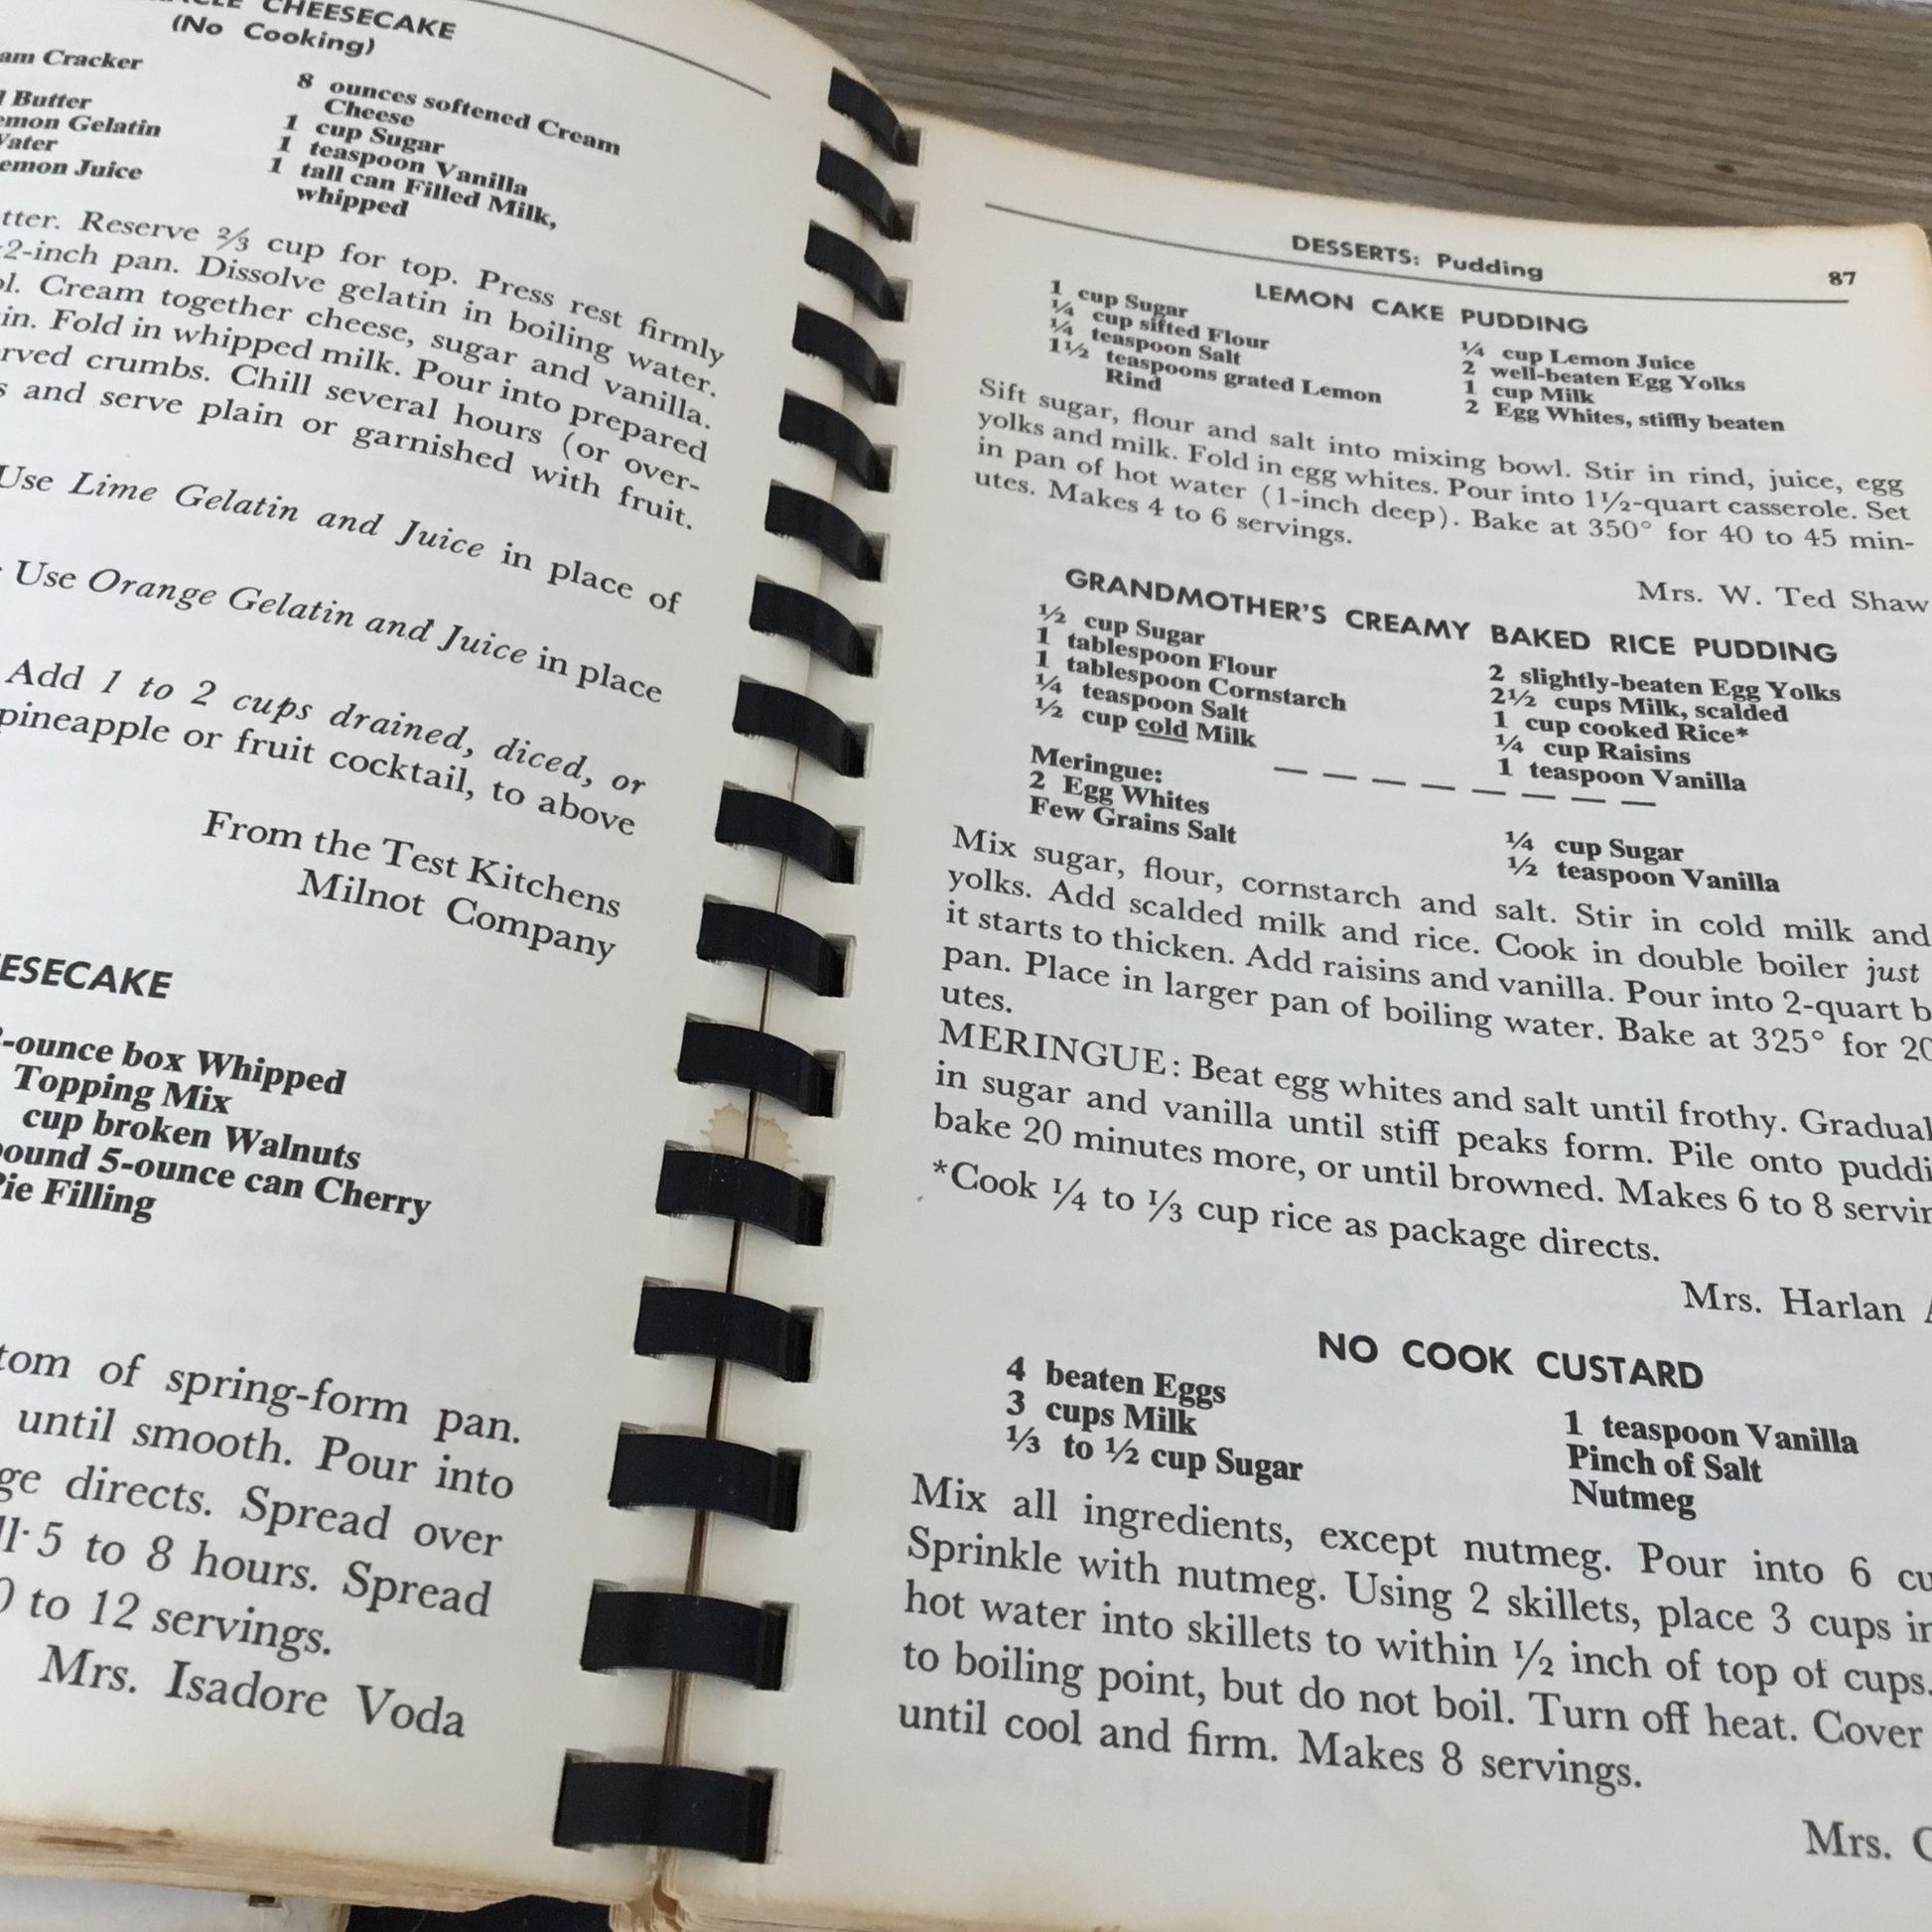 CHEESECAKE
(No Cooking)
Cracker
Butter
Gelatin
Juice
8 ounces softened Cream
Cheese
1 cup Sugar
1 teaspoon Vanilla
1 tall can Filled Milk,
whipped
Reserve ⅔ cup for top. Press rest firmly
2-inch pan. Dissolve gelatin in boiling water.
Cream together cheese, sugar and vanilla.
Fold in whipped milk. Pour into prepared
crumbs. Chill several hours (or over-
and serve plain or garnished with fruit.
Use Lime Gelatin and Juice in place of
Use Orange Gelatin and Juice in place
Add 1 to 2 cups drained, diced, or
pineapple or fruit cocktail, to above
From the Test Kitchens
Milnot Company
-ounce box Whipped
Topping Mix
cup broken Walnuts
5-ounce can Cherry
Filling
of spring-form pan.
until smooth. Pour into
directs. Spread over
5 to 8 hours. Spread
to 12 servings.
Mrs. Isadore Voda
DESSERTS: Pudding 87
LEMON CAKE PUDDING
1 cup Sugar
¼ cup sifted Flour
¼ teaspoon Salt
1½ teaspoons grated Lemon
Rind
¼ cup Lemon Juice
2 well-beaten Egg Yolks
1 cup Milk
2 Egg Whites, stiffly beaten
Sift sugar, flour and salt into mixing bowl. Stir in rind, juice, egg
yolks and milk. Fold in egg whites. Pour into 1½-quart casserole. Set
in pan of hot water (1-inch deep). Bake at 350° for 40 to 45 min-
utes. Makes 4 to 6 servings.
Mrs. W. Ted Shaw
GRANDMOTHER'S CREAMY BAKED RICE PUDDING
½ cup Sugar
1 tablespoon Flour
1 tablespoon Cornstarch
¼ teaspoon Salt
½ cup cold Milk
2 slightly-beaten Egg Yolks
2½ cups Milk, scalded
1 cup cooked Rice*
¼ cup Raisins
1 teaspoon Vanilla
Meringue:
2 Egg Whites
Few Grains Salt
¼ cup Sugar
½ teaspoon Vanilla
Mix sugar, flour, cornstarch and salt. Stir in cold milk and
yolks. Add scalded milk and rice. Cook in double boiler just
it starts to thicken. Add raisins and vanilla. Pour into 2-quart
pan. Place in larger pan of boiling water. Bake at 325° for
utes.
MERINGUE: Beat egg whites and salt until frothy.
in sugar and vanilla until stiff peaks form. Pile onto
bake 20 minutes more, or until browned. Makes 6 to 8
*Cook ¼ to ⅓ cup rice as package directs.
Mrs. Harlan
NO COOK CUSTARD
4 beaten Eggs
3 cups Milk
⅓ to ½ cup Sugar
1 teaspoon Vanilla
Pinch of Salt
Nutmeg
Mix all ingredients, except nutmeg. Pour into 6
Sprinkle with nutmeg. Using 2 skillets, place 3 cups
hot water into skillets to within ½ inch of top of cups.
to boiling point, but do not boil. Turn off heat. Cover
until cool and firm. Makes 8 servings.
Mrs.